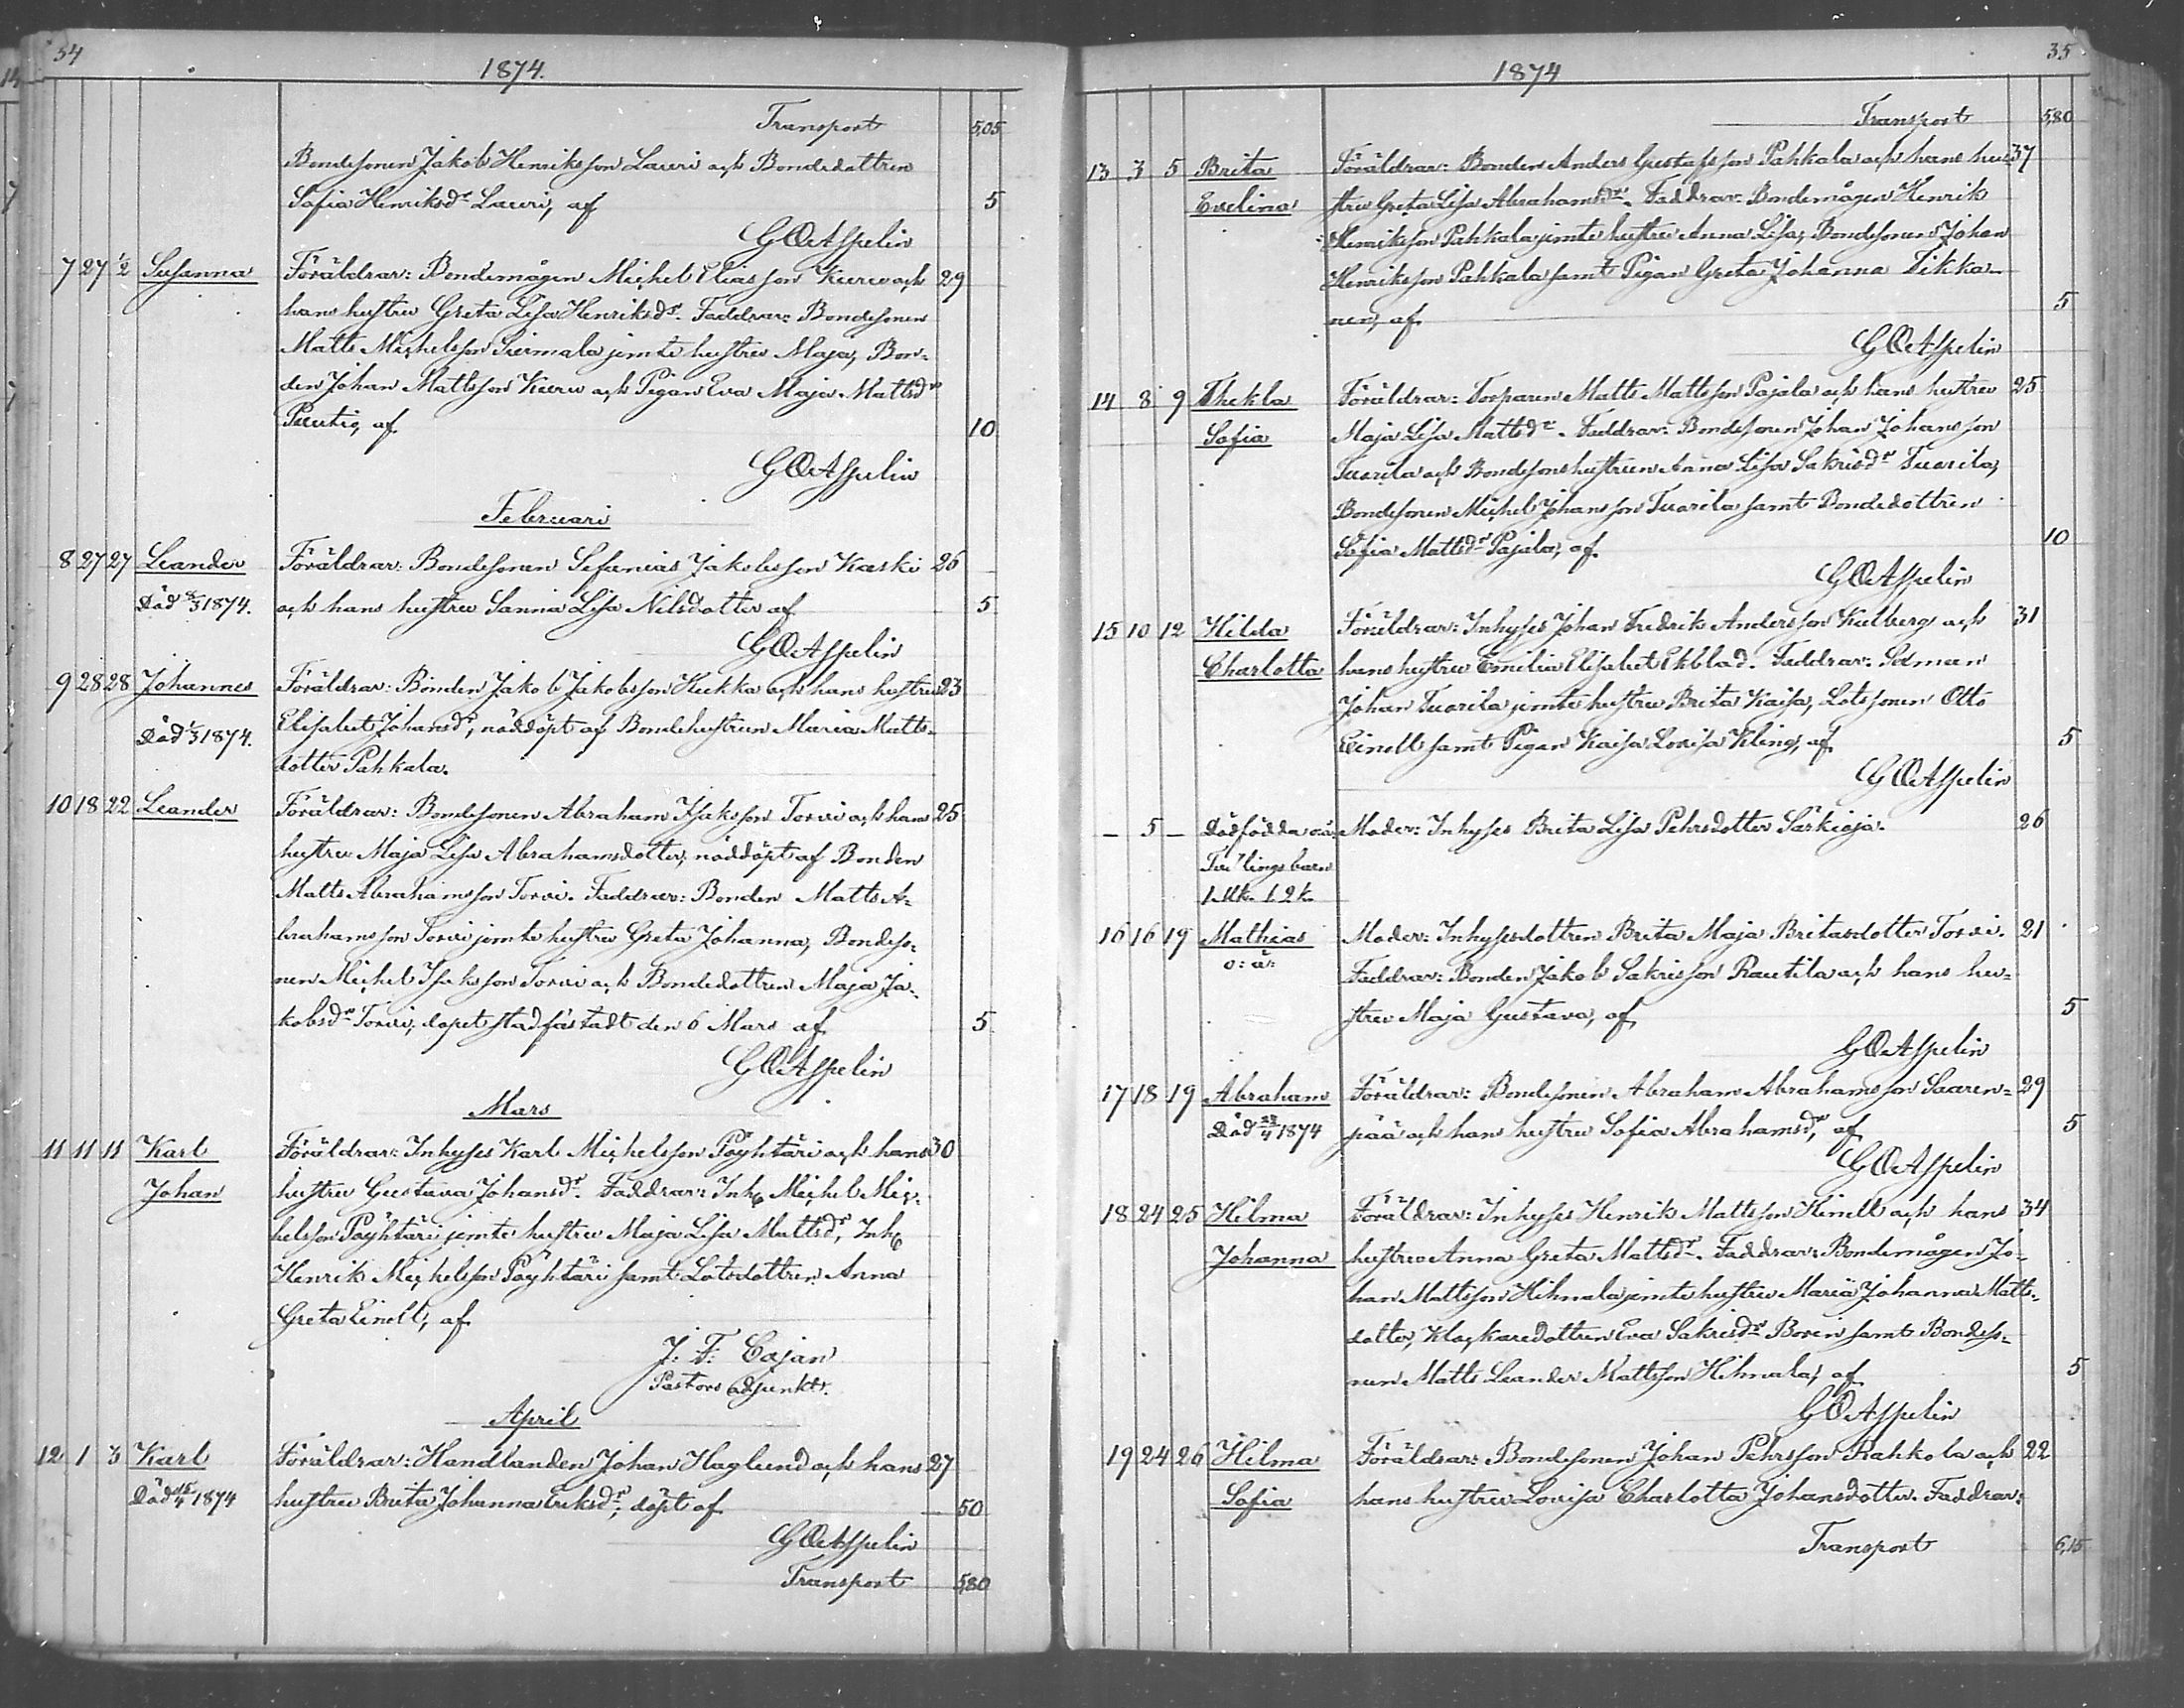 34
1874.
Transport 5,05
Bondesonen Jakob Henriksson Lauri och Bondedottren
Sofia Henriksdr Lauri, af 5
G O Aspelin
7 27 1/2 Susanna Föräldrar: Bondemågen Michel Eliasson Kuru och 29
hans hustru Greta Lisa Henriksdr. Faddrar: Bondesonen
Matts Michelsson jemte hustru Maja, Bon-
den Johan Mattsson Kuru och Pigan Eva Maja Mattsdr
af 10
G O Aspelin
Februari
8 27 27 Leander Föräldrar: Bondesonen Sefanias Jakobsson Kaski 26
Död 8/3 1874. och hans hustru Sanna Lisa Nilsdotter af 5
G O Aspelin
9 28 28 Johannes Föräldrar: Bonden Jakob Jakobsson Kukka och hans hustru 23
Död 1/3 1874. Elisabet Johansdr, nöddöpt af Bondehustrun Maria Matts-
dotter Pahkala.
10 18 22 Leander Föräldrar: Bondesonen Abraham Isaksson Torvi och hans 25
hustru Maja Lisa Abrahamsdotter, nöddöpt af Bonden
Matts Abrahamsson Torvi. Faddrar: Bonden Matts A-
brahamsson Torvi jemte hustru Greta Johanna, Bondeso-
nen Michel Isaksson Torvi och Bondedottren Maja Ja-
kobsdr Torvi, dopet stadfästadt den 6 Mars af 5
G O Aspelin
Mars
11 11 11 Karl Föräldrar: Inhyses Karl Michelsson Pöyhtäri och hans 30
Johan hustru Gustava Johansdr. Faddrar: Inh. Michel Mic-
helsson Pöyhtäri jemte hustru Maja Lisa Mattsdr, Inh.
Henrik Michelsson Pöyhtäri samt Lotsdottren Anna
Greta Einoll, af
J. F. Cajan
Pastors adjunkt.
April
12 1 3 Karl Föräldrar: Handlanden Johan Haglund och hans 27
Död 15/4 1874 hustru Brita Johanna Eriksdr, döpt af 50
G O Aspelin
Transport 5,80
35
1874
Transport 5,80
13 3 5 Brita Föräldrar: Bonden Anders Gustafsson Pahkala och hans hu- 37
Evelina stru Greta Lisa Abrahamsdr. Faddrar: Bondemågen Henrik
Henriksson Pahkala jemte hustru Anna Lisa, Bondesonen Johan
Henriksson Pahkala samt Pigan Greta Johanna Tikka-
nen, af 5
G O Aspelin
14 8 9 Thekla Föräldrar: Torparen Matts Mattsson Pajala och hans hustru 25
Sofia Maja Lisa Mattsdr. Faddrar: Bondesonen Johan Johansson
Tuorila och Bondsonshustrun Anna Lisa Sakrisdr Tuorila,
Bondesonen Michel Johansson Tuorila samt Bondedottren
Sofia Mattsdr Pajala, af. 10
G O Aspelin
15 10 12 Hilda Föräldrar: Inhyses Johan Fredrik Andersson Kulberg och 31
Charlotta hans hustru Emilia Elisabet Ekblad. Faddrar:
Johan Tuorila jemte hustru Brita Kaisa, Lotssonen Otto
Einoll samt Pigan Kaisa Lovisa Kling, af 5
G O Aspelin
— 5 — Dödfödda o:ä: Moder: Inhyses Brita Lisa Pehrsdotter Särkioja. 26
Tvillingsbarn
1 Mk. 1 Qk.
16 16 19 Mathias Moder: Inhysesdottren Brita Maja Britasdotter Torvi. 21
o: ä: Faddrar: Bonden Jakob Sakrisson Rautila och hans hu-
stru Maja Gustava, af 5
G O Aspelin
17 18 19 Abraham Föräldrar: Bondesonen Abraham Abrahamsson Saaren- 29
Död 23/4 1874 pää och hans hustru Sofia Abrahamsdr, af 5
G O Aspelin
18 24 25 Hilma Föräldrar: Inhyses Henrik Mattsson Hinell och hans 34
Johanna hustru Anna Greta Mattsdr. Faddrar: Bondemågen Jo-
han Mattsson Hihnala jemte hustru Maria Johanna Matts-
dotter, Klockaredottren Eva Sakrisdr Borin samt Bondeso-
nen Matts Leander Mattsson Hihnala, af 5
G O Aspelin
19 24 26 Hilma Föräldrar: Bondesonen Johan Pehrsson Rahkola och 22
Sofia hans hustru Lovisa Charlotta Johansdotter. Faddrar:
Transport 6,15